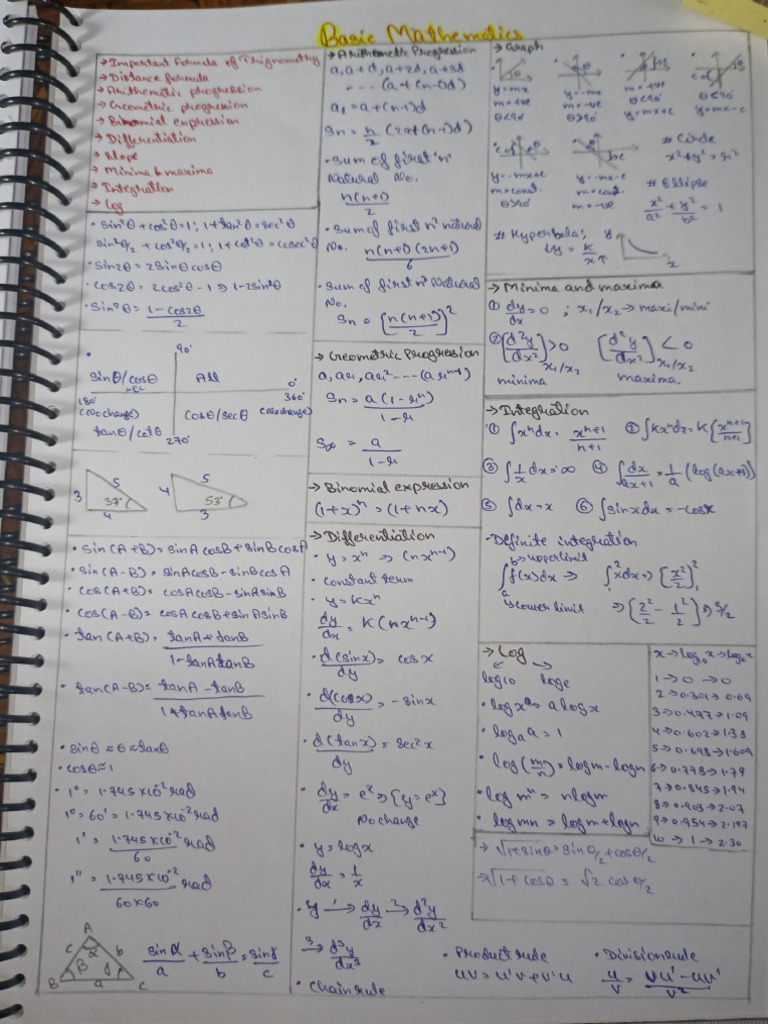 Basic Mathematics
→ Important Formula of Trignometry
→ Distance formula
→ Arithematic progression
→ Geometric progression
→ Binomial expression
→ Differentiation
→ Slope
→ Minima & maxima
→ Integration
→ Log
• sin²θ + cos²θ = 1 ; 1 + tan²θ = sec²θ
sin²θ/2 + cos²θ/2 = 1 ; 1 + cot²θ = cosec²θ
• sin2θ = 2sinθcosθ
• cos2θ = 2cos²θ - 1 ⇒ 1 - 2sin²θ
• sin²θ = (1 - cos2θ)/2
90°
sinθ/cosθ
All
180°
0°
360°
(No change)
(No change)
tanθ/cotθ
cosθ/secθ
270°
3 5 37° 4
4 5 53° 3
• sin(A+B) = sinA cosB + sinB cosA
• sin(A-B) = sinAcosB - sinBcosA
• cos(A+B) = cosAcosB - sinAsinB
• cos(A-B) = cosAcosB + sinAsinB
• tan(A+B) = (tanA + tanB)/(1 - tanAtanB)
• tan(A-B) = (tanA - tanB)/(1 + tanAtanB)
• sinθ ≈ θ ≈ tanθ
• cosθ ≈ 1
• 1° = 1.745×10⁻² rad
1° = 60' = 1.745×10⁻² rad
1' = (1.745×10⁻²)/60 rad
1" = (1.745×10⁻²)/(60×60) rad
A α c b β γ B a C
sinα/a + sinβ/b = sinγ/c
→ Arithematic Progression
a, a+d, a+2d, a+3d
---- (a+(n-1)d)
aₗ = a+(n-1)d
Sn = n/2 (2a+(n-1)d)
• Sum of first 'n'
Natural No.
n(n+1)/2
• Sum of first n² natural
No. n(n+1)(2n+1)/6
• Sum of first n³ Natural
No.
Sn = [n(n+1)/2]²
→ Geometric Progression
a, ar, ar² ---- (arⁿ⁻¹)
Sn = a(1-rⁿ)/(1-r)
S∞ = a/(1-r)
→ Binomial expression
(1+x)ⁿ = (1+nx)
→ Differentiation
• y = xⁿ ⇒ (nxⁿ⁻¹)
• constant term
• y = Kxⁿ
dy/dx = K(nxⁿ⁻¹)
• d(sinx)/dy = cosx
• d(cosx)/dy = -sinx
• d(tanx)/dy = sec²x
• dy/dx = eˣ ⇒ [y = eˣ]
No change
• y = logx
dy/dx = 1/x
• y 1→ dy/dx 2→ d²y/dx²
3→ d³y/dx³
• Chain rule
• Product rule
uv = u'v + v'u
• Division rule
u/v = (vu' - uv')/v²
→ Graph
y=mx
m=+ve
θ<90°
y=-mx
m=-ve
θ>90°
m=+ve
θ<90°
y=mx+c
θ<90°
y=mx-c
y=-mx+c
m=const.
θ>90°
y=-mx-c
m=const.
m=-ve
# Circle
x²+y²=r²
# Ellipse
x²/a² + y²/b² = 1
# Hyperbola;
y = K/x
y
x
→ Minima and maxima
① dy/dx = 0 ; x₁/x₂ → maxi/mini
② [d²y/dx²]x₁/x₂ > 0 [d²y/dx²]x₁/x₂ < 0
minima maxima.
→ Integration
① ∫xⁿdx = xⁿ⁺¹/n+1 ② ∫Kxⁿdx = K[xⁿ⁺¹/n+1]
③ ∫1/x dx = ∞ ④ ∫dx/ax+1 = 1/a (log(ax+1))
⑤ ∫dx = x ⑥ ∫sinxdx = -cosx
• Definite integration
b → upper limit
∫f(x)dx ⇒ ∫₁²xdx ⇒ [x²/2]₁²
a → Lower limit ⇒ [2²/2 - 1²/2] ⇒ 3/2
→ Log
log10 loge
• logxᵃ ⇒ a logx
• logₐa = 1
• log(m/n) = logm - logn
• log mⁿ = nlogm
• log mn = logm + logn
x → log₁₀x → logₑx
1 → 0 → 0
2 → 0.301 → 0.69
3 → 0.477 → 1.09
4 → 0.602 → 1.38
5 → 0.698 → 1.609
6 → 0.778 → 1.79
7 → 0.845 → 1.94
8 → 0.903 → 2.07
9 → 0.954 → 2.197
10 → 1 → 2.30
→ √1+sinθ = sinθ/2 + cosθ/2
→ √1+cosθ = √2 cosθ/2